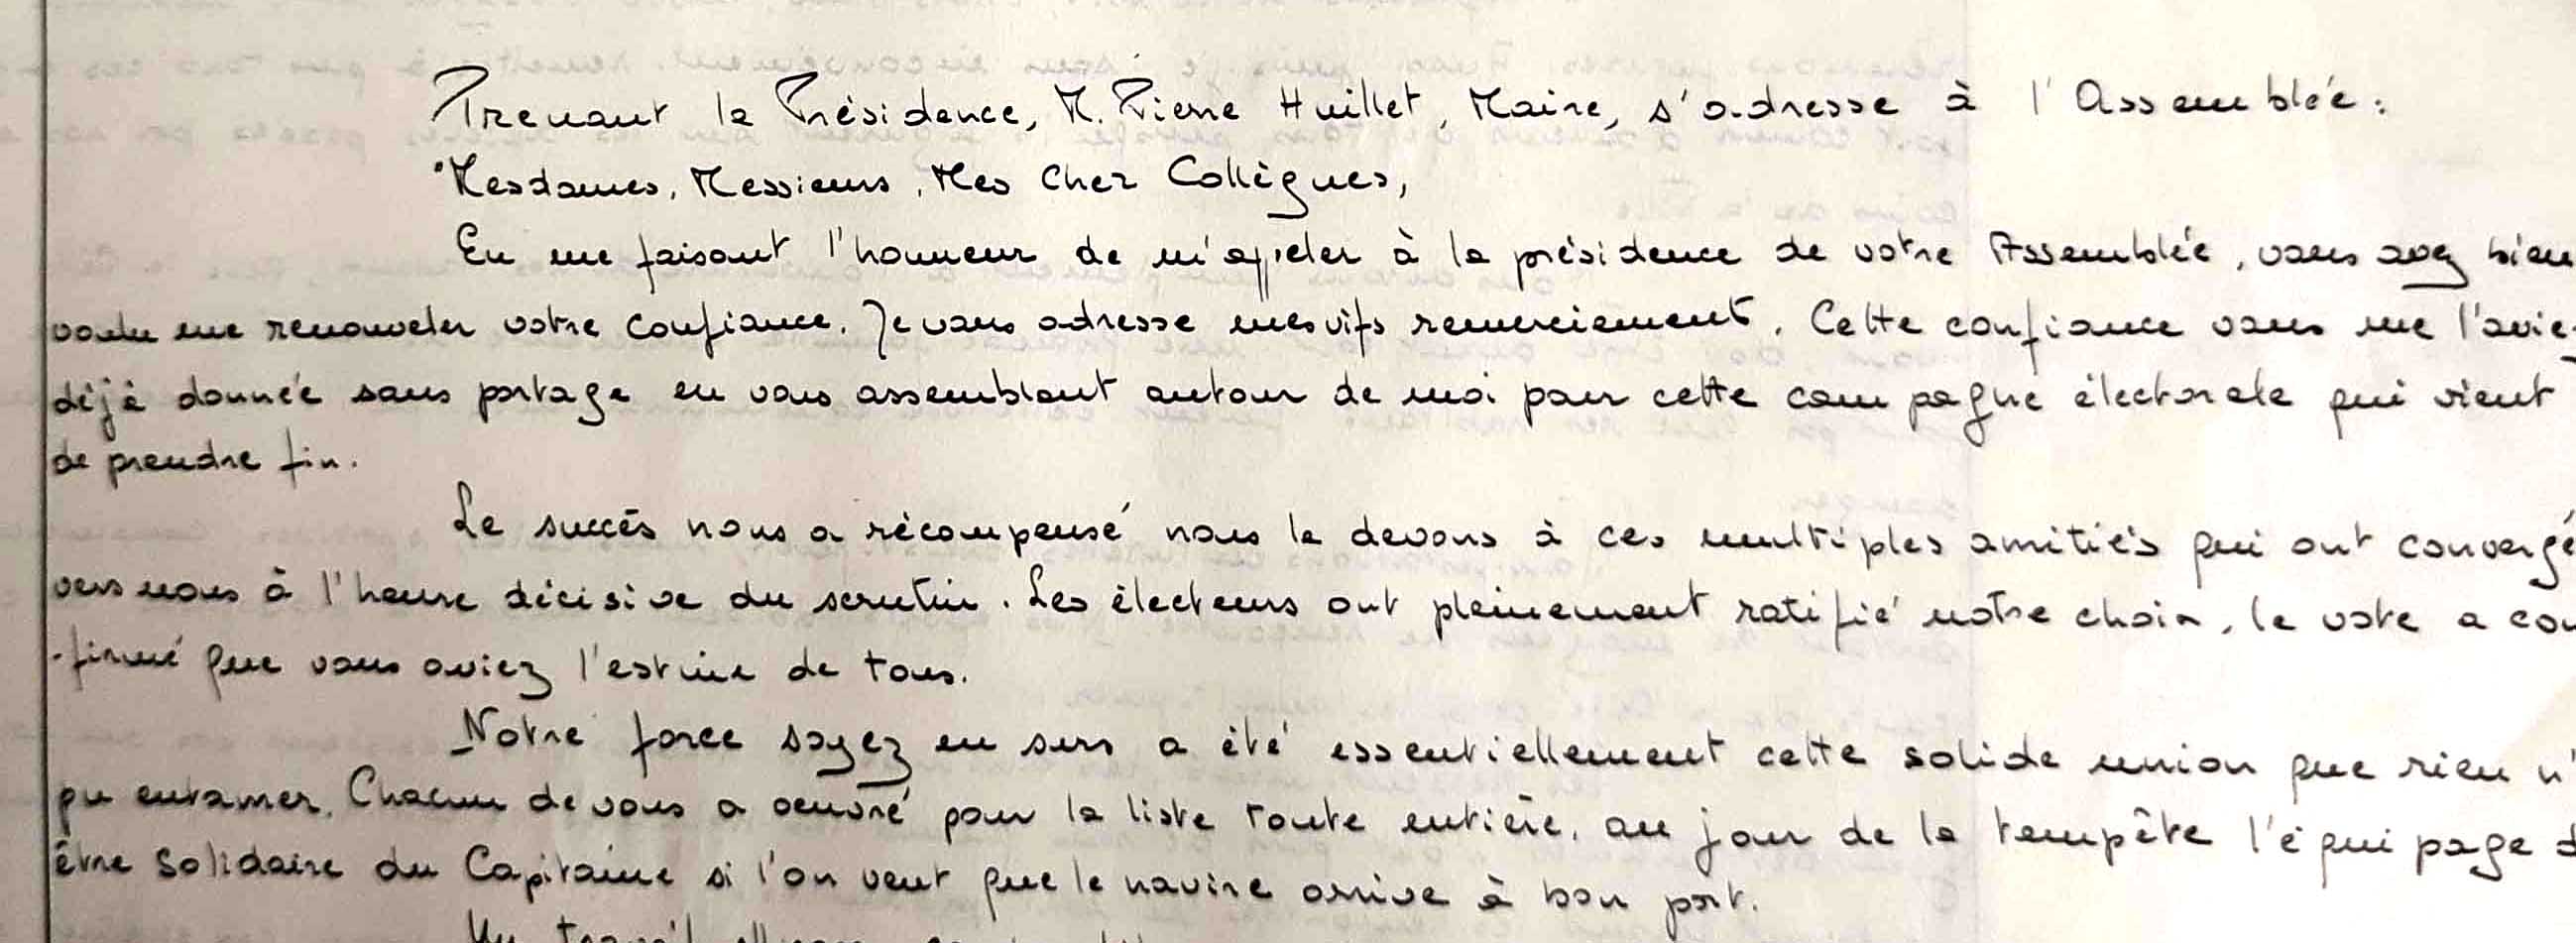 Prenant la Présidence, M. Pierre Huillet, Maire, s'adresse à l'Assemblée:
"Mesdames, Messieurs, Mes Cher Collègues,
En me faisant l'honneur de m'appeler à la présidence de votre Assemblée, vous avez bien
voulu me renouveler votre confiance. Je vous adresse mes vifs remerciement. Cette confiance vous me l'aviez
déjà donnée sans partage en vous assemblant autour de moi pour cette campagne électorale qui vient
de prendre fin.
Le succès nous a récompensé nous le devons à ces multiples amitiés qui ont convergé
vers nous à l'heure décisive du scrutin. Les électeurs ont pleinement ratifié notre choix, le vote a con
-firmé que vous aviez l'estime de tous.
Notre force soyez en surs a été essentiellement cette solide union que rien n'
pu entamer. Chacun de vous a oeuvré pour la liste toute entière, au jour de la tempête l'équipage d
être solidaire du Capitaine si l'on veut que le navire arrive à bon port.
Un travail